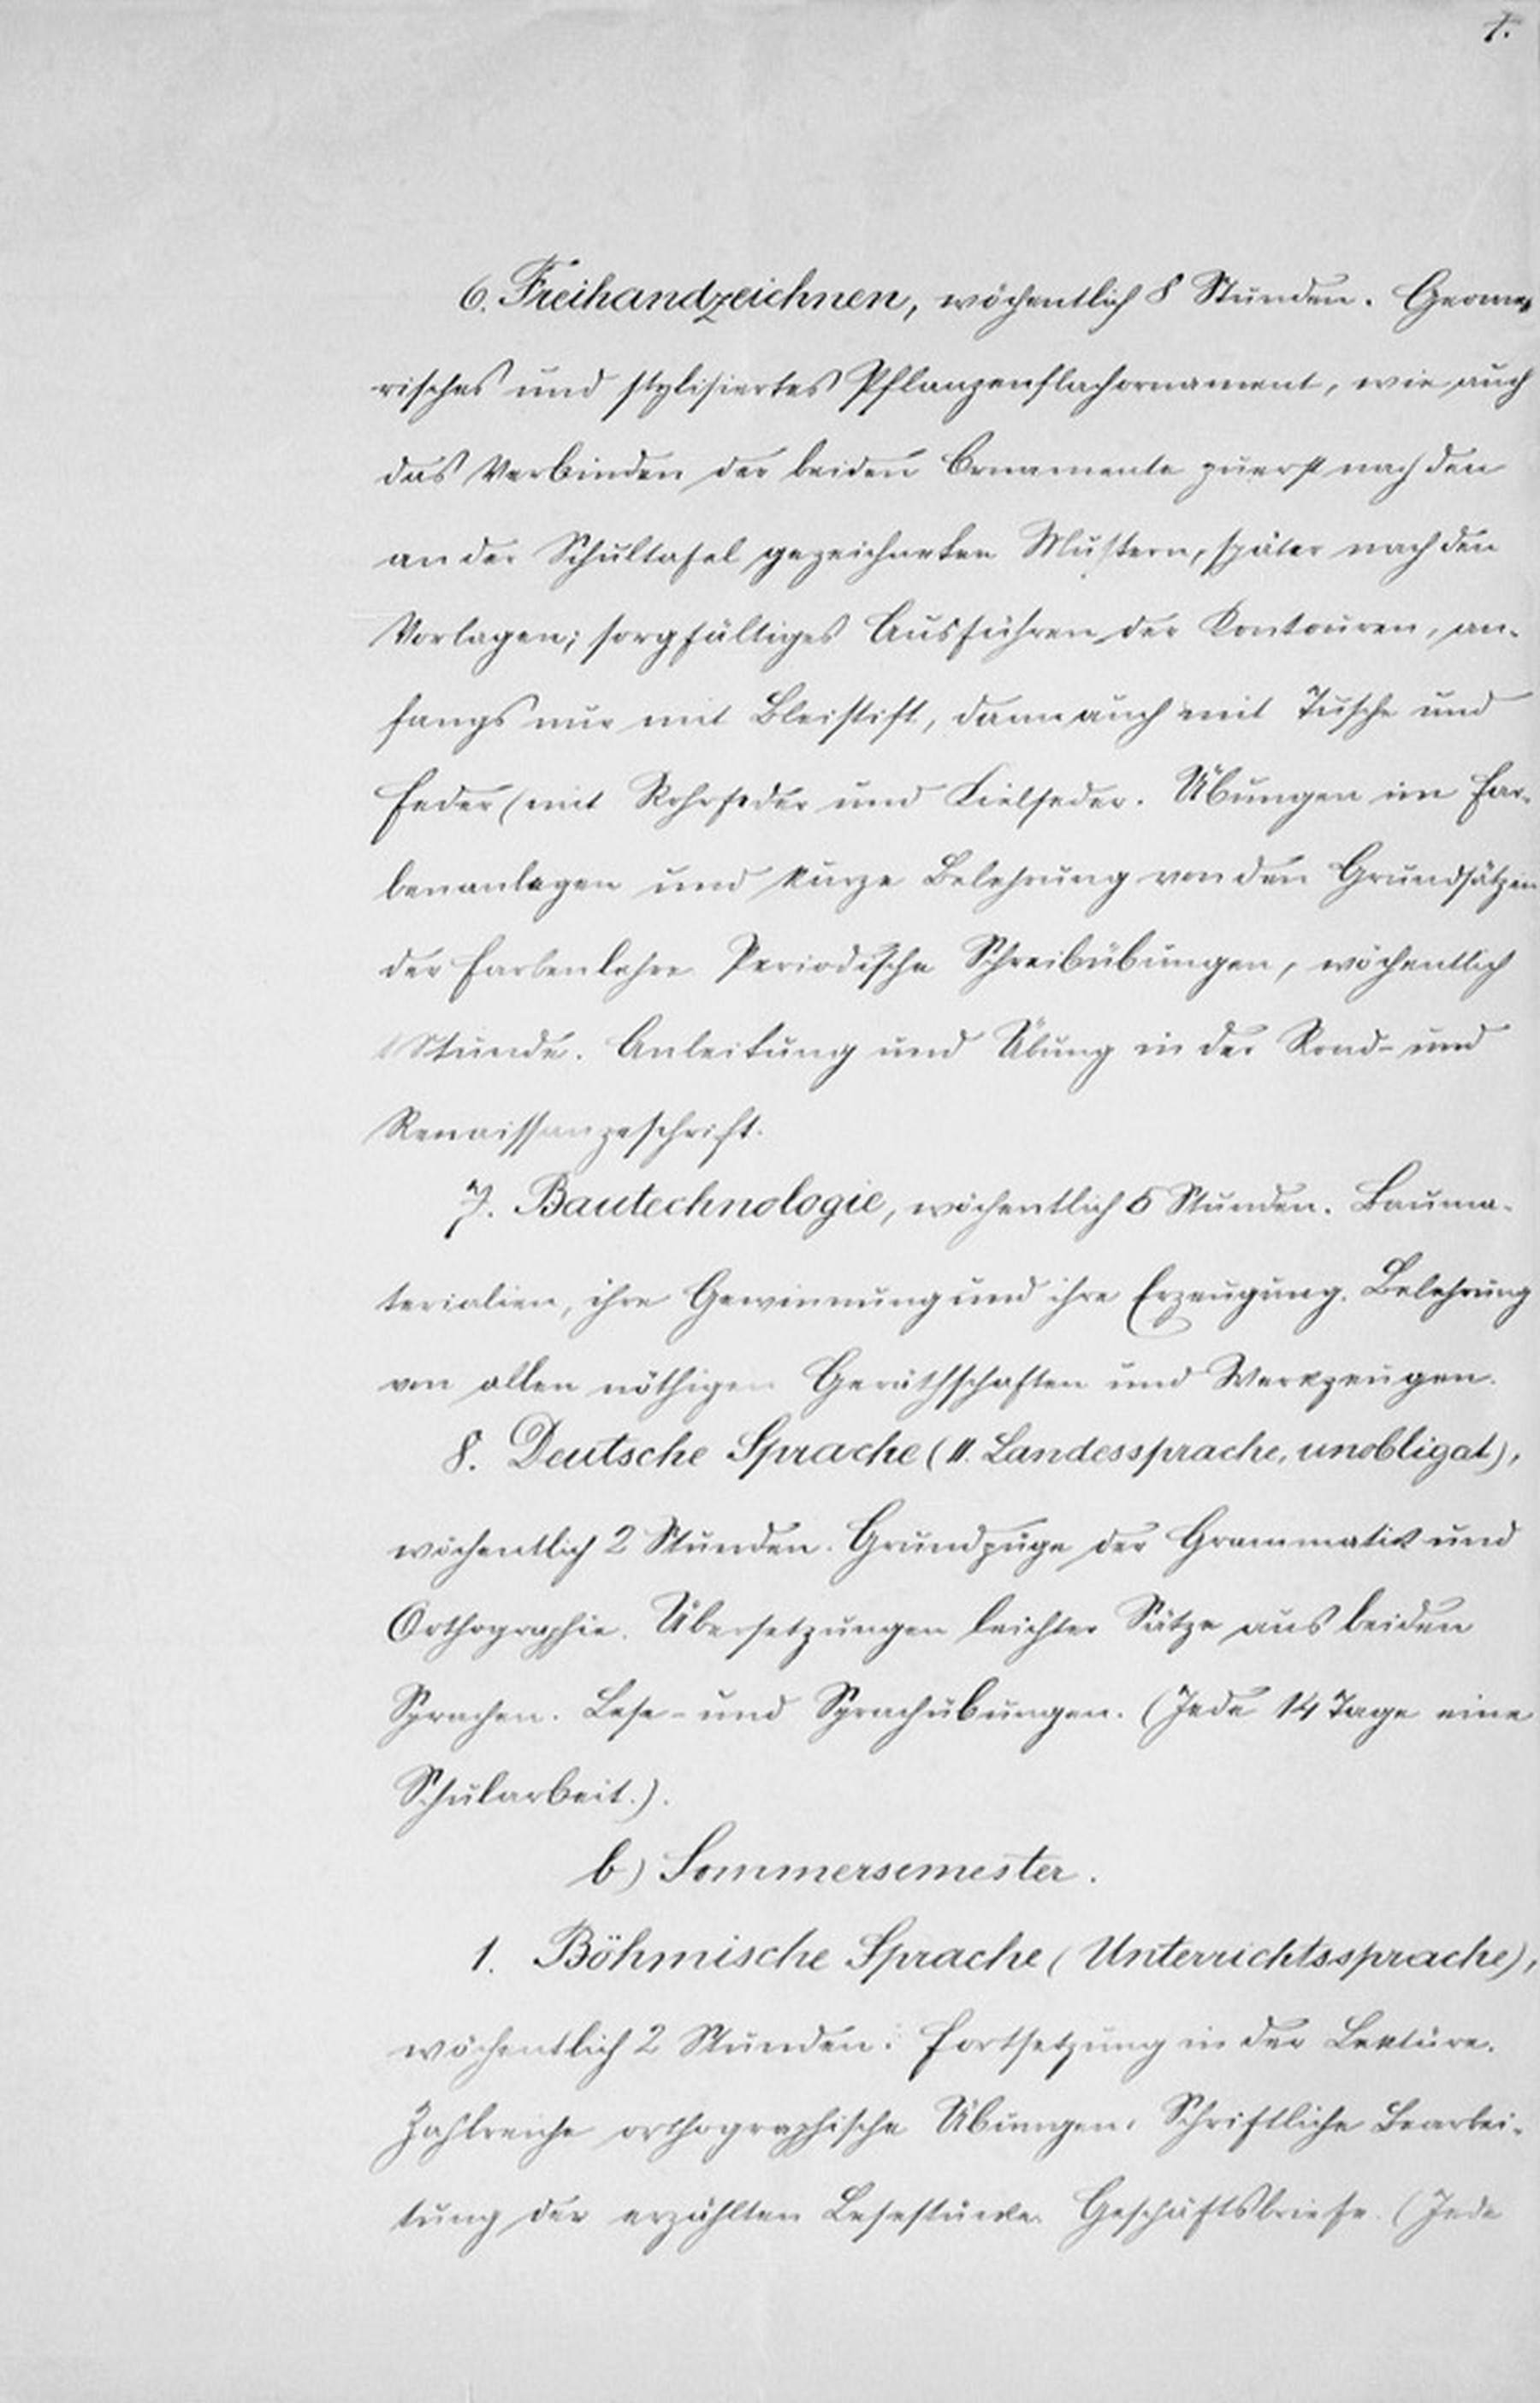 7.
6. Freihandzeichnen, wöchentlich 8 Stunden. Geome-
risches und stylisiertes Pflanzenflachornament, wie auch
das Verbinden der beiden Ornamente zuerst nach den
an der Schultafel gezeichneten Mustern, später nach den
Vorlagen; sorgfältiges Ausführen der Kontouren, an-
fangs nur mit Bleistift, dann auch mit Tusche und
Feder (mit Rohrfeder und Kielfeder. Übungen im Far-
benanlagen und kurze Belehrung von den Grundsätzen
der Farbenlehre Periodische Schreibübungen, wöchentlich
1 Stunde. Anleitung und Übung in der Rond- und
Renaissanzeschrift.
7. Bautechnologie, wöchentlich 5 Stunden. Bauma-
terialien, ihre Gewinnung und ihre Erzeugung. Belehrung
von allen nöthigen Geräthschaften und Werkzeugen.
8. Deutsche Sprache (II. Landessprache, unobligat),
wöchentlich 2 Stunden. Grundzüge der Grammatik und
Orthographie. Übersetzungen leichter Sätze aus beiden
Sprachen. Lese- und Sprachübungen. (Jede 14 Tage eine
Schularbeit.).
b) Sommersemester.
1. Böhmische Sprache (Unterrichtssprache),
wöchentlich 2 Stunden: Fortsetzung in der Lektüre.
Zahlreiche orthographische Übungen. Schriftliche Bearbei-
tung der erzählten Lesestücke. Geschäftsbriefe. (Jede